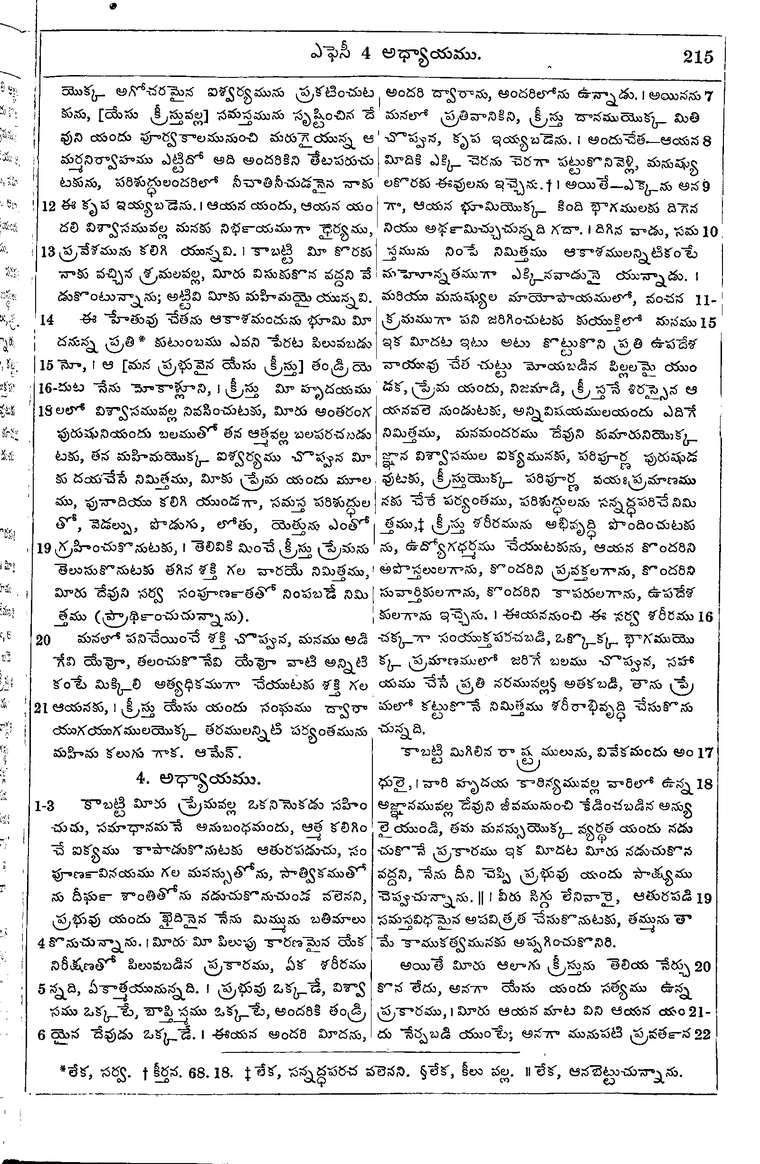 ఎఫెసీ 4 అధ్యాయము. 215
యొక్క అగోచరమైన ఐశ్వర్యమును ప్రకటించుట
కును, [యేసు క్రీస్తువల్ల] సమస్తమును సృష్టించిన దే
వుని యందు పూర్వకాలమునుంచి మరుగైయున్న ఆ
మర్మనిర్వాహము ఎట్టిదో అది అందరికిని తేటపరుచు
టకును, పరిశుద్ధులందరిలో నీచాతినీచుడనైన నాకు
12 ఈ కృప ఇయ్యబడెను. । ఆయన యందు, ఆయన యం
దలి విశ్వాసమువల్ల మనకు నిర్భయముగా ధైర్యము,
13 ప్రవేశమును కలిగి యున్నవి. । కాబట్టి మీ కొరకు
నాకు వచ్చిన శ్రమలవల్ల, మీరు విసుకుకొన వద్దని వే
డుకొంటున్నాను; అట్టివి మీకు మహిమయై యున్నవి.
14 ఈ హేతువు చేతను ఆకాశమందును భూమి మీ
దనున్న ప్రతి* కుటుంబము ఎవని పేరట పిలువబడు
15 నో, । ఆ [మన ప్రభువైన యేసు క్రీస్తు] తండ్రి యె
16-దుట నేను మోకాళ్లూని, । క్రీస్తు మీ హృదయము
18 లలో విశ్వాసమువల్ల నివసించుటకు, మీరు అంతరంగ
పురుషునియందు బలముతో తన ఆత్మవల్ల బలపరచబడు
టకు, తన మహిమయొక్క ఐశ్వర్యము చొప్పున మీ
కు దయచేసే నిమిత్తము, మీకు ప్రేమ యందు మూల
ము, పునాదియు కలిగి యుండగా, సమస్త పరిశుద్ధుల
తో, వెడల్పు, పొడుగు, లోతు, యెత్తును ఎంతో
19 గ్రహించుకొనుటకు, । తెలివికి మించే క్రీస్తు ప్రేమను
తెలుసుకొనుటకు తగిన శక్తి గల వారయే నిమిత్తము,
మీరు దేవుని సర్వ సంపూర్ణతతో నింపబడే నిమి
త్తము (ప్రార్థించుచున్నాను).
20 మనలో పనిచేయించే శక్తి చొప్పున, మనము అడి
గేవి యేవో, తలంచుకొనేవి యేవో వాటి అన్నిటి
కంటే మిక్కిలి అత్యధికముగా చేయుటకు శక్తి గల
21 ఆయనకు, । క్రీస్తు యేసు యందు సంఘము ద్వారా
యుగయుగములయొక్క తరములన్నిటి పర్యంతమును
మహిమ కలుగు గాక. ఆమేన్.
4. అధ్యాయము.
1-3 కాబట్టి మీరు ప్రేమవల్ల ఒకనినొకడు సహిం
చుచు, సమాధానమనే అనుబంధమందు, ఆత్మ కలిగిం
చే ఐక్యము కాపాడుకొనుటకు ఆతురపడుచు, సం
పూర్ణవినయము గల మనస్సుతోను, సాత్వికముతో
ను దీర్ఘ శాంతితోను నడుచుకొనుచుండ వలెనని,
ప్రభువు యందు ఖైదినైన నేను మిమ్మును బతిమాలు
4 కొనుచున్నాను. । మీరు మీ పిలుపు కారణమైన యేక
నిరీక్షణతో పిలువబడిన ప్రకారము, ఏక శరీరము
5 న్నది, ఏకాత్మయునున్నది. । ప్రభువు ఒక్కడే, విశ్వా
సము ఒక్కటే, బాప్తిస్మము ఒక్కటే, అందరికి తండ్రి
6 యైన దేవుడు ఒక్కడే. । ఈయన అందరి మీదను,
అందరి ద్వారాను, అందరిలోను ఉన్నాడు. । అయినను 7
మనలో ప్రతివానికిని, క్రీస్తు దానముయొక్క మితి
చొప్పున, కృప ఇయ్యబడెను. । అందుచేత—ఆయన 8
మీదికి ఎక్కి చెరను చెరగా పట్టుకొనివెళ్లి, మనుష్యు
లకొరకు ఈవులను ఇచ్చెను. † । అయితే—ఎక్కెను అన 9
గా, ఆయన భూమియొక్క కింది భాగములకు దిగెన
నియు అర్థమిచ్చుచున్నది గదా. । దిగిన వాడు, సమ 10
స్తమును నింపే నిమిత్తము ఆకాశములన్నిటికంటే
మహోన్నతముగా ఎక్కినవాడునై యున్నాడు. ।
మరియు మనుష్యుల మాయోపాయములో, వంచన 11-
క్రమముగా పని జరిగించుటకు కుయుక్తిలో మనము 15
ఇక మీదట ఇటు అటు కొట్టుకొని ప్రతి ఉపదేశ
వాయువు చేత చుట్టు మోయబడిన పిల్లలమై యుం
డక, ప్రేమ యందు, నిజమాడి, క్రీస్తనే శిరస్సైన ఆ
యనవలె నుండుటకు, అన్నివిషయములయందు ఎదిగే
నిమిత్తము, మనమందరము దేవుని కుమారునియొక్క
జ్ఞాన విశ్వాసముల ఐక్యమునకు, పరిపూర్ణ పురుషుడ
వుటకు, క్రీస్తుయొక్క పరిపూర్ణ వయఃప్రమాణము
నకు చేరే పర్యంతము, పరిశుద్ధులను సన్నద్ధపరిచే నిమి
త్తము,‡ క్రీస్తు శరీరమును అభివృద్ధి పొందించుటకు
ను, ఉద్యోగధర్మము చేయుటకును, ఆయన కొందరిని
అపొస్తలులగాను, కొందరిని ప్రవక్తలగాను, కొందరిని
సువార్తికులగాను, కొందరిని కాపరులగాను, ఉపదేశ
కులగాను ఇచ్చెను. । ఈయననుంచి ఈ సర్వ శరీరము 16
చక్కగా సంయుక్తపరచబడి, ఒక్కొక్క భాగముయొ
క్క ప్రమాణములో జరిగే బలము చొప్పున, సహా
యము చేసే ప్రతి నరమువల్ల§ అతకబడి, తాను ప్రే
మలో కట్టుకొనే నిమిత్తము శరీరాభివృద్ధి చేసుకొను
చున్నది.
కాబట్టి మిగిలిన రాష్ట్రములును, వివేకమందు అం 17
ధులై, । వారి హృదయ కాఠిన్యమువల్ల వారిలో ఉన్న 18
అజ్ఞానమువల్ల దేవుని జీవమునుంచి కేడించబడిన అన్యు
లైయుండి, తమ మనస్సుయొక్క వ్యర్థత యందు నడు
చుకొనే ప్రకారము ఇక మీదట మీరు నడుచుకొన
వద్దని, నేను దీని చెప్పి ప్రభువు యందు సాక్ష్యము
చెప్పుచున్నాను.॥ । వీరు సిగ్గు లేనివారై, ఆతురపడి 19
సమస్తవిధమైన అపవిత్రత చేసుకొనుటకు, తమ్మును తా
మే కాముకత్వమునకు అప్పగించుకొనిరి.
అయితే మీరు ఆలాగు క్రీస్తును తెలియ నేర్చు 20
కొన లేదు, అనగా యేసు యందు సత్యము ఉన్న
ప్రకారము, । మీరు ఆయన మాట విని ఆయన యం 21-
దు నేర్పబడి యుంటే; అనగా మునుపటి ప్రవర్తన 22
*లేక, సర్వ. † కీర్తన. 68. 18. ‡ లేక, సన్నద్ధపరచ వలెనని. §లేక, కీలు వల్ల. ॥ లేక, ఆనబెట్టుచున్నాను.